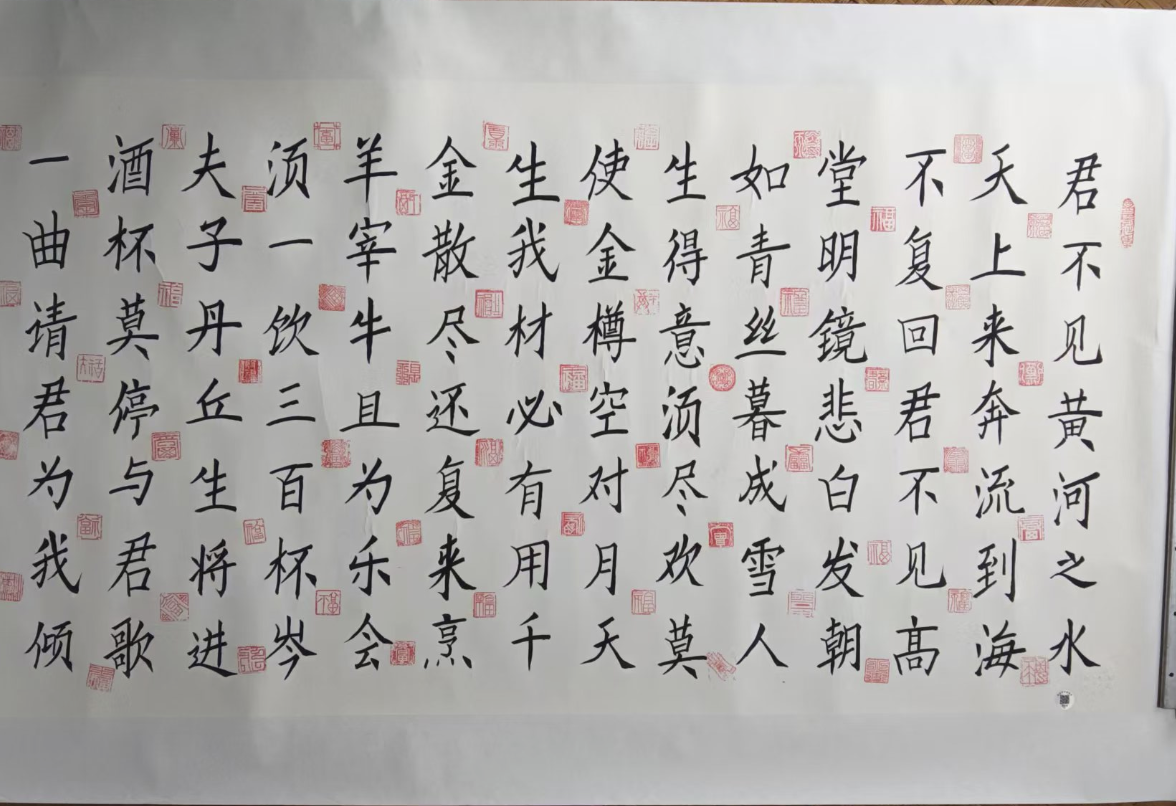 君不见黄河之水
天上来奔流到海
不复回君不见高
堂明镜悲白发朝
如青丝暮成雪人
生得意须尽欢莫
使金樽空对月天
生我材必有用千
金散尽还复来烹
羊宰牛且为乐会
须一饮三百杯岑
夫子丹丘生将进
酒杯莫停与君歌
一曲请君为我倾